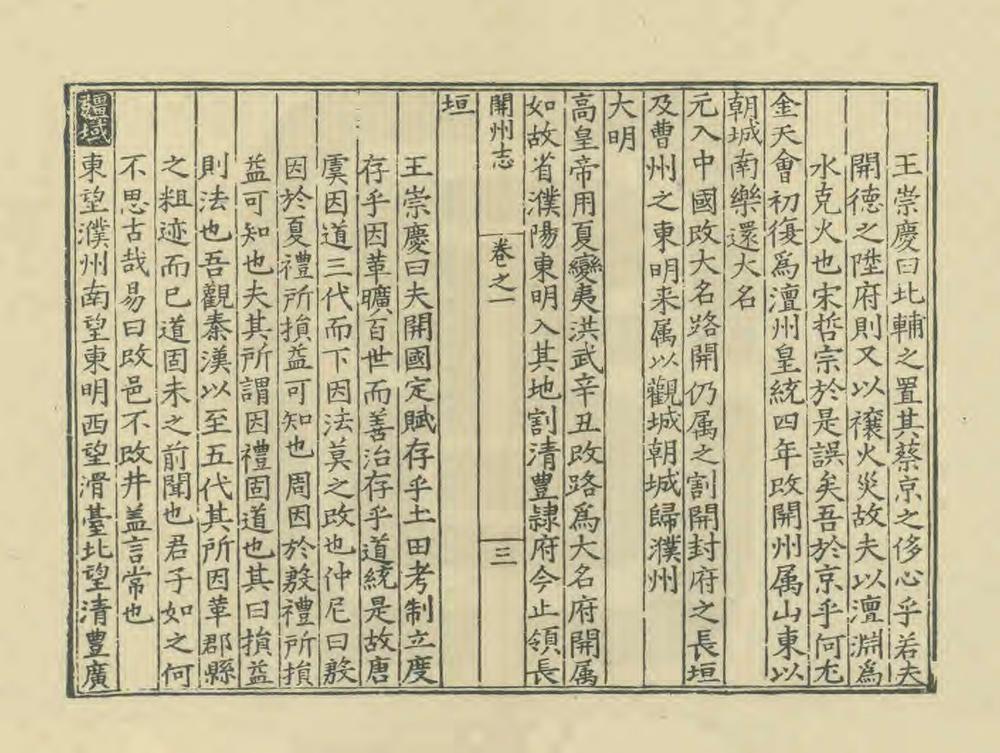 王崇慶曰北輔之置其蔡京之侈心乎若夫
開德之陞府則又以禳火災故夫以澶淵為
水克火也宋哲宗於是誤矣吾於京乎何尤
金天會初復爲澶州皇統四年改開州属山東以
朝城南樂還大名
元入中國改大名路開仍属之割開封府之長垣
及曹州之東明来属以觀城朝城歸濮州
大明
高皇帝用夏變夷洪武辛丑改路爲大名府開属
如故省濮陽東明入其地割清豊隷府今止領長
開州志
卷之一
三
垣
王崇慶曰夫開國定賦存乎土田考制立度
存乎因革曠百世而善治存乎道統是故唐
虞因道三代而下因法莫之改也仲尼曰殷
因於夏禮所損益可知也周因於殷禮所損
益可知也夫其所謂因禮固道也其曰損益
則法也吾觀秦漢以至五代其所因革郡縣
之粗迹而已道固未之前聞也君子如之何
不思古哉易曰改邑不改井盖言常也
疆域
東望濮州南望東明西望滑臺北望清豊廣